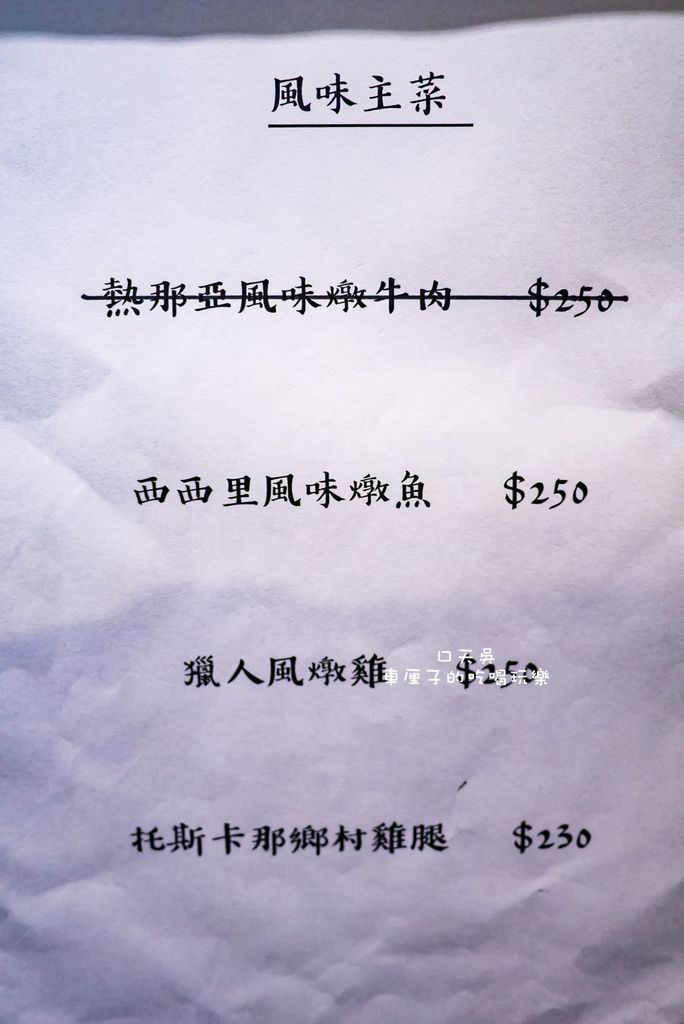 風味主菜
熱那亞風味燉牛肉 $250
西西里風味燉魚 $250
獵人風燉雞 $250
口天吳
車厘子的吃喝玩樂
托斯卡那鄉村雞腿 $230